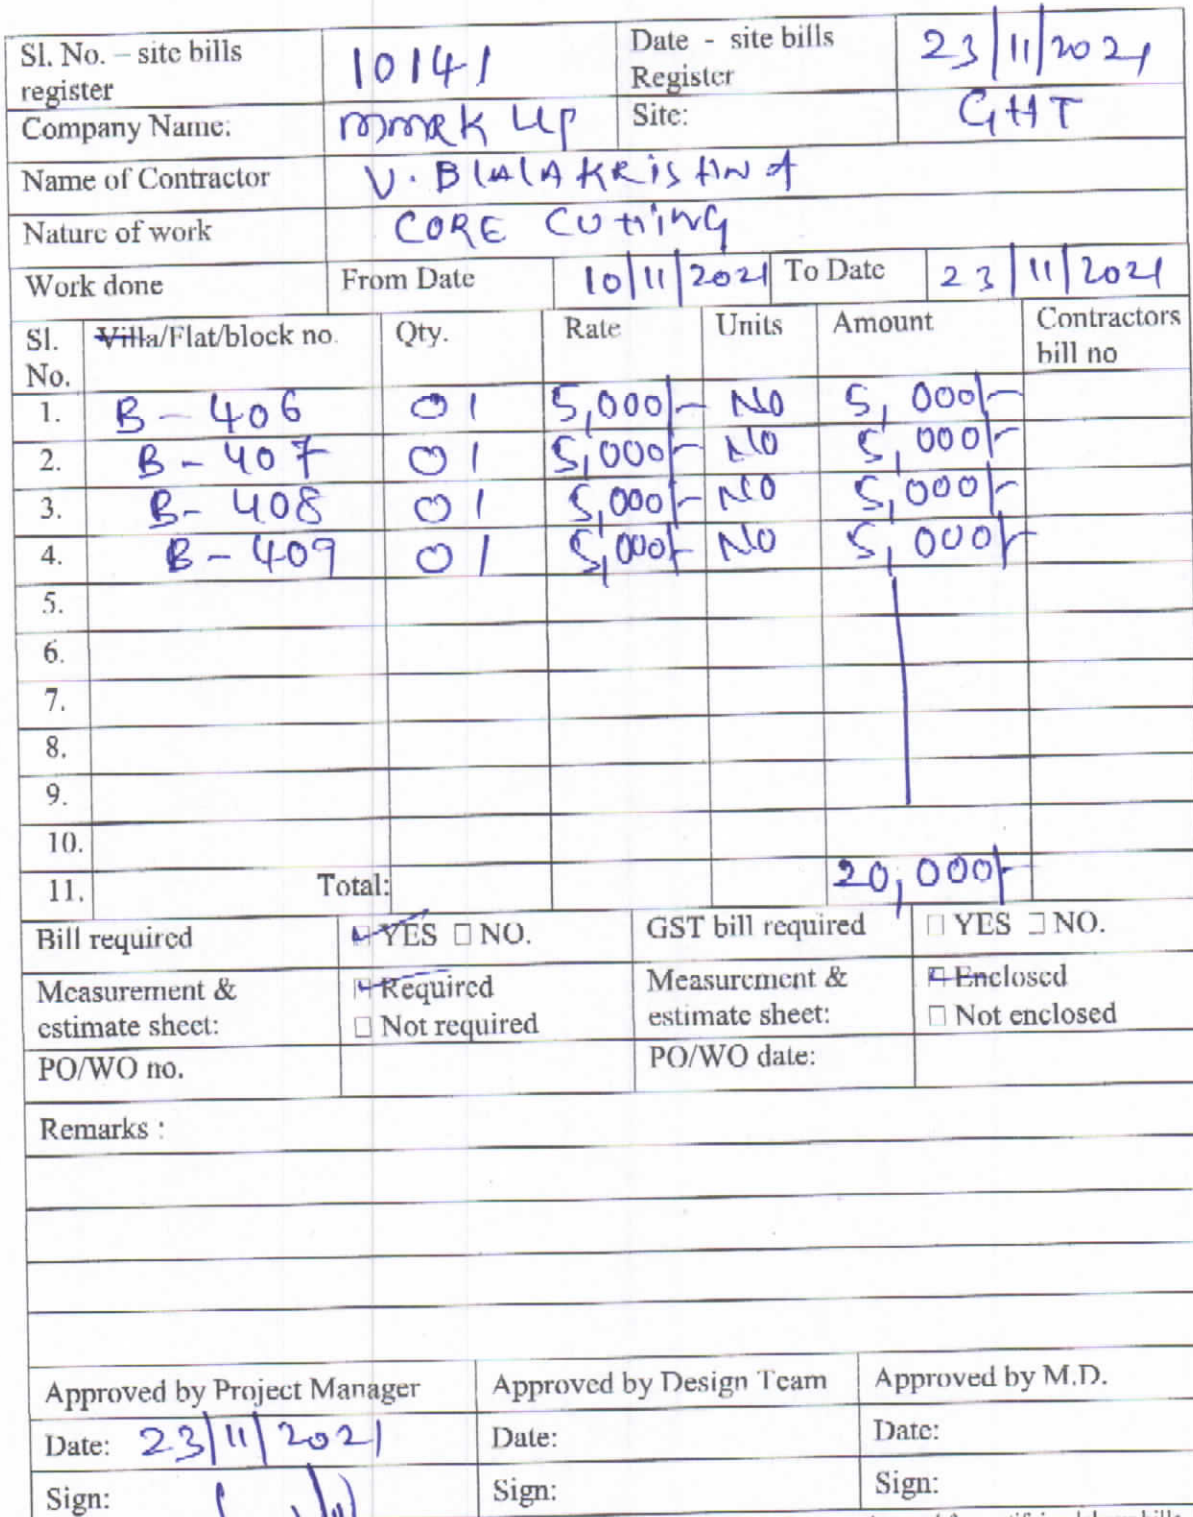 Sl. No. – site bills register 10141 Date - site bills Register 23/11/2021
Company Name: MMRK UP Site: GHT
Name of Contractor V. BlALA KRiSHNA
Nature of work CORE CUTTiNG
Work done From Date 10/11/2021 To Date 23/11/2021
Sl. No. Villa/Flat/block no. Qty. Rate Units Amount Contractors bill no
1. B-406 01 5,000/- NO 5,000/-
2. B-407 01 5,000/- NO 5,000/-
3. B-408 01 5,000/- NO 5,000/-
4. B-409 01 5,000/- NO 5,000/-
5.
6.
7.
8.
9.
10.
11. Total: 20,000/-
Bill required YES NO. GST bill required YES NO.
Measurement & estimate sheet: Required Not required Measurement & estimate sheet: Enclosed Not enclosed
PO/WO no. PO/WO date:
Remarks :
Approved by Project Manager Approved by Design Team Approved by M.D.
Date: 23/11/2021 Date: Date:
Sign: Sign: Sign: